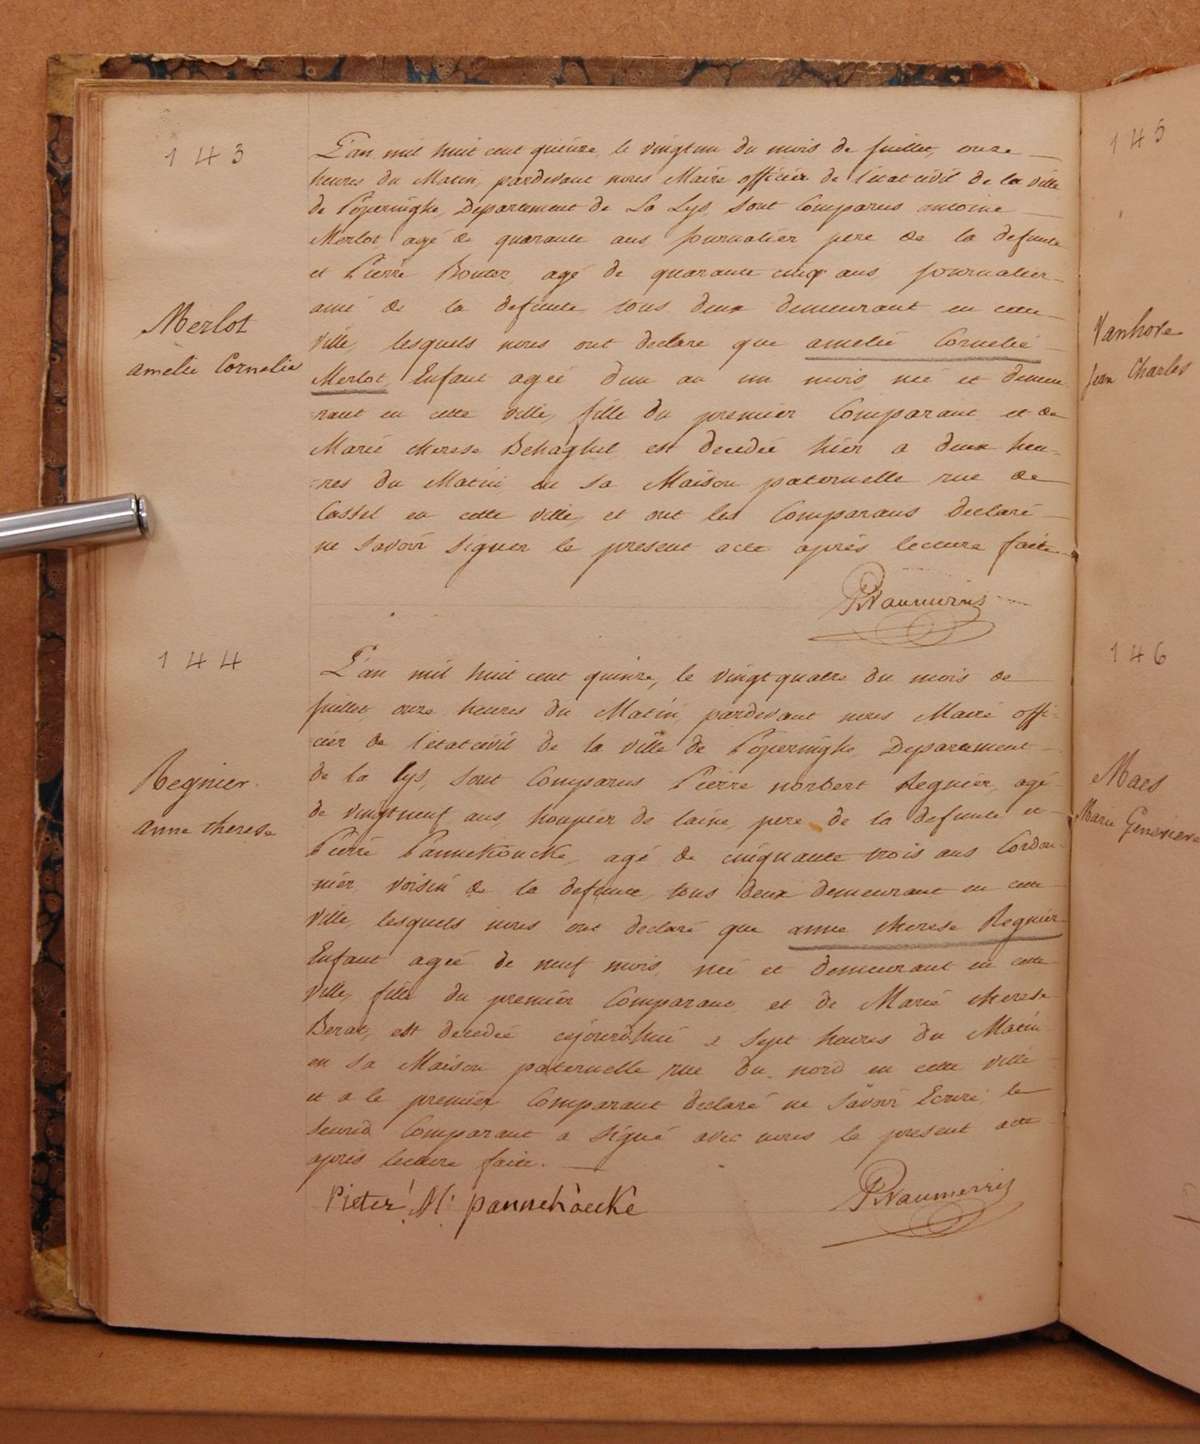 143
L'an mil huit cent quinze, le vingt un du mois de juillet, onze
heures du Matin, pardevant nous Maire officier de l'etat civil de la ville
de Poperinghe, Departement de La Lys, sont Comparus antoine
Merlot agé de quarante ans journalier pere de la defunte
et Pierre agé de quarante cinq ans journalier
ami de la defunte tous deux demeurant en cette
ville, lesquels nous ont declaré que amelie Cornelie
Merlot
amelie Cornelie
Merlot, Enfant ageé d'un an un mois, neé et demeu-
rant en cette ville, fille du premier Comparant et de
Marie therese Behaghel est decedée hier a deux heu-
res du Matin en sa Maison paternelle rue de
Cassel en cette ville, et ont les Comparans declaré
ne savoir signer le present acte après lecture faite
PVanmerris
144
L'an mil huit cent quinze, le vingt quatre du mois de
juillet onze heures du Matin, pardevant nous Maire offi-
cier de l'etat civil de la ville de Poperinghe Departement
de la Lys sont Comparus Pierre norbert Regnier, agé
Regnier
anne therese
de vingt neuf ans, houpier de laine, pere de la defunte et
Pierre Pannekoucke, agé de cinquante trois ans Cordon-
nier, voisin de la defunte, tous deux demeurant en cette
ville, lesquels nous ont declaré que anne therese Regnier
Enfant ageé de neuf mois, neé et demeurant en cette
ville, fille du premier Comparant et de Marie therese
est decedée cejourd'hui a sept heures du Matin
en sa Maison paternelle rue du nord en cette ville
et a le premier Comparant declaré ne savoir Ecrire, le
second Comparant a signé avec nous le present acte
après lecture faite.
Pieter pannekoecke
PVanmerris
145
Vanhove
Jean Charles
146
Maes
Marie Genevieve